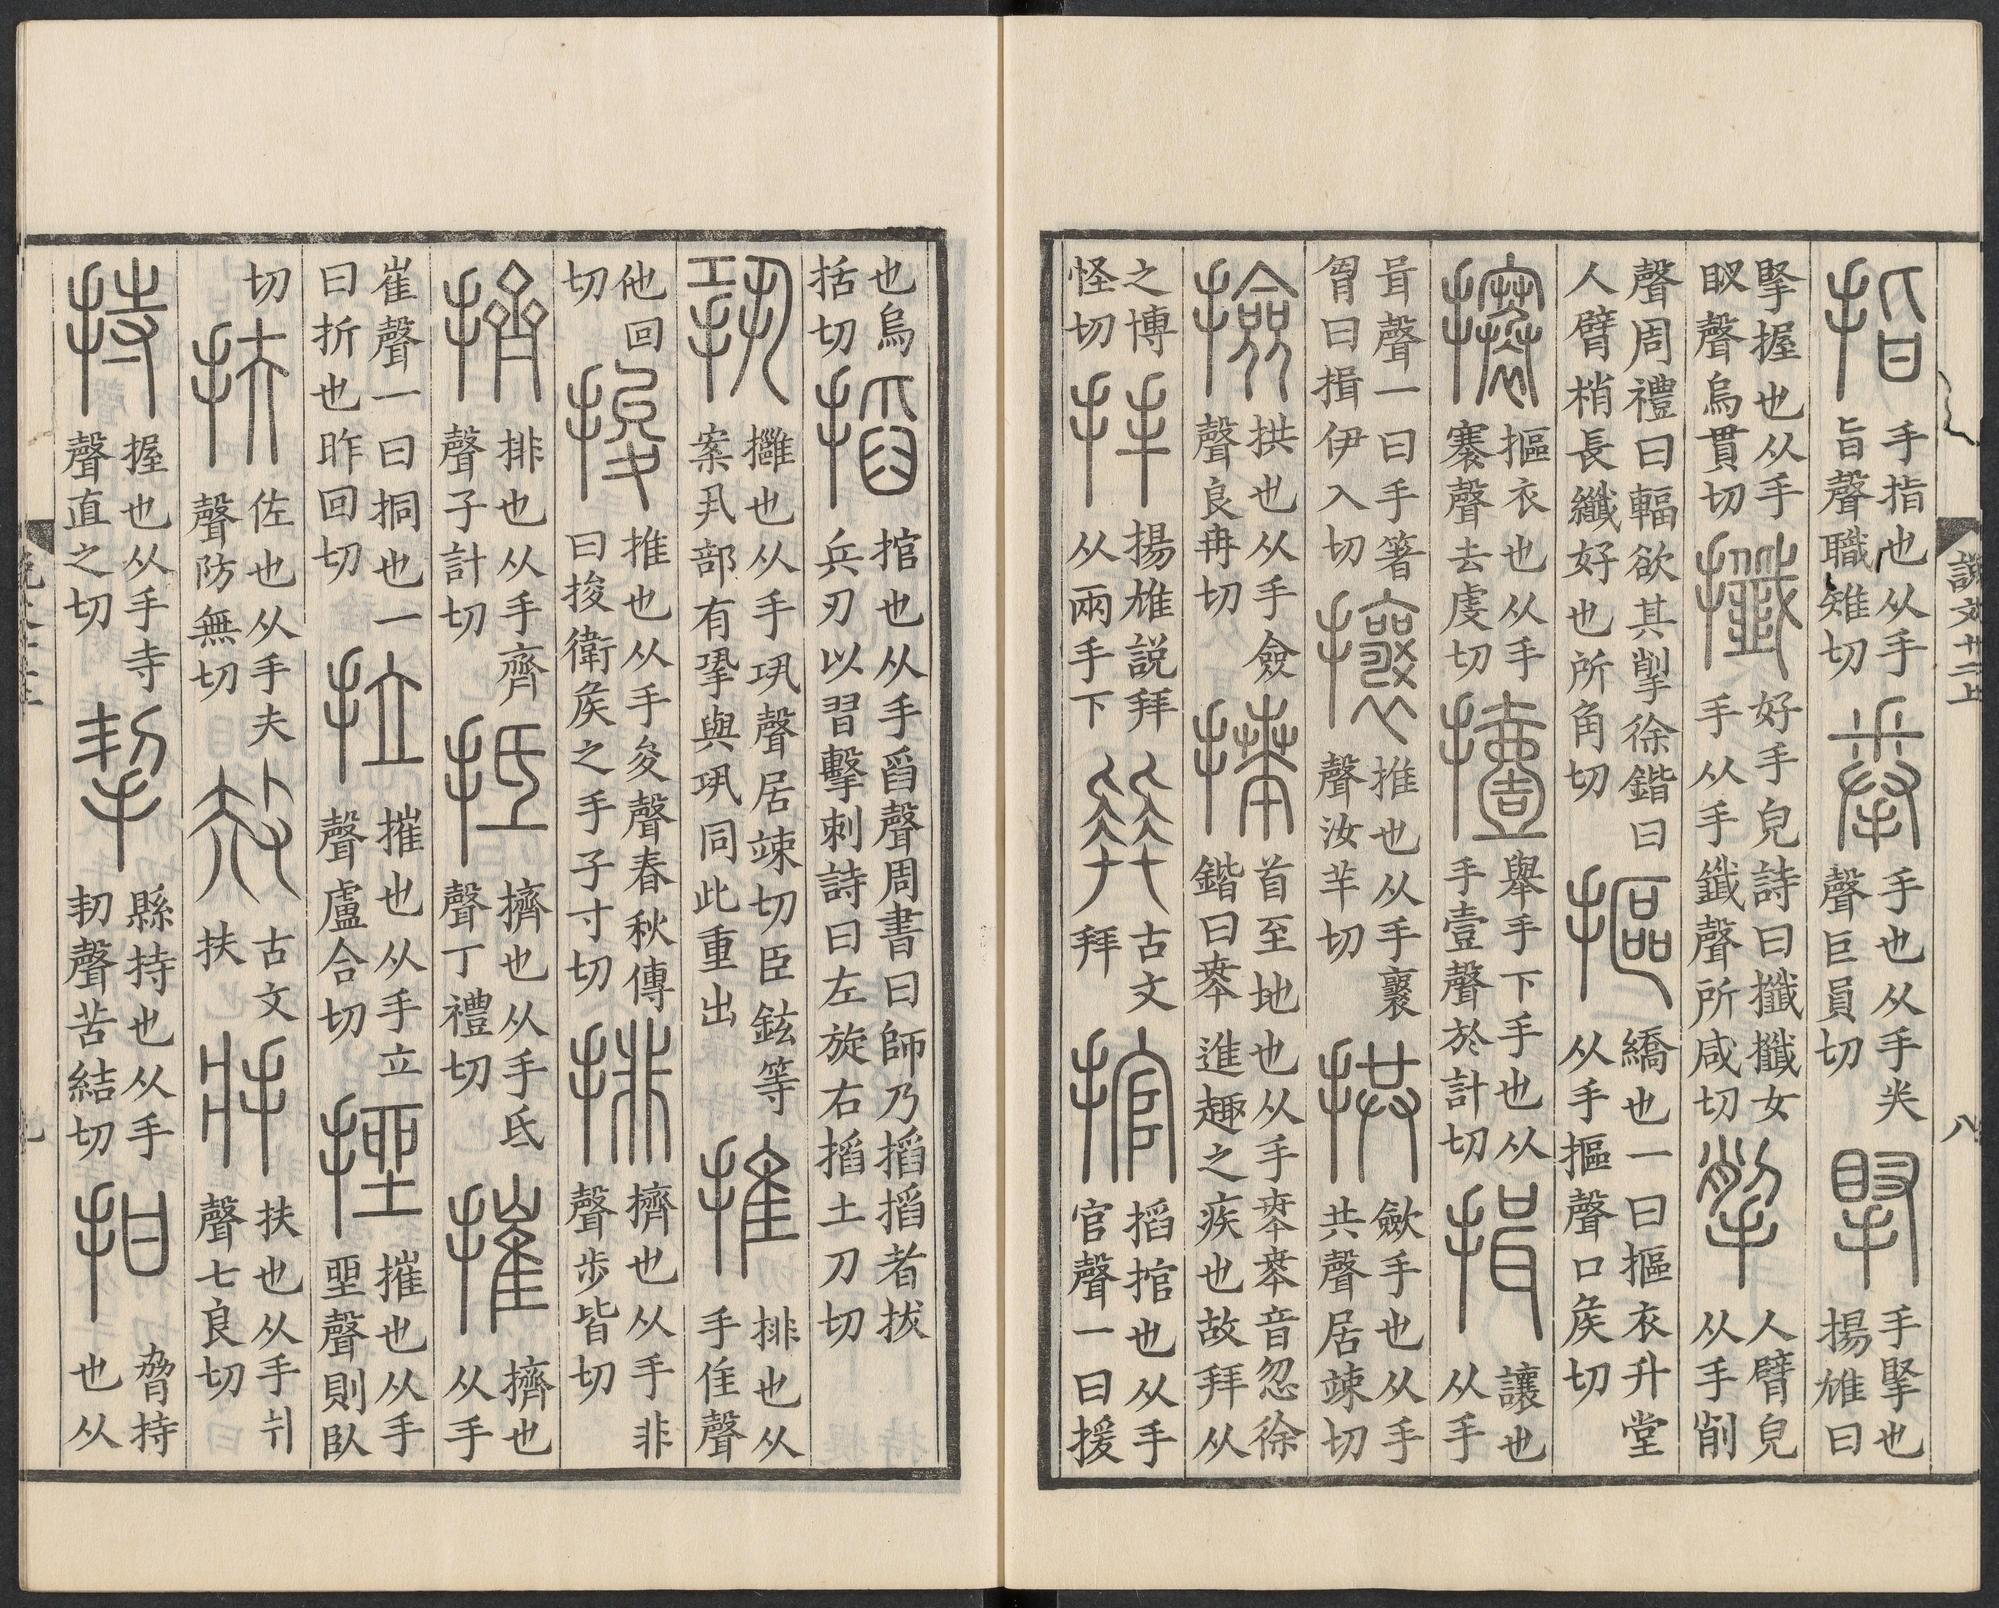 說文十二上 八
指 手指也从手旨聲職雉切 拳 手也从手𢍏聲巨員切 掔 手掔也揚雄曰
掔握也从手𥄗聲烏貫切 攕 好手皃詩曰攕攕女手从手韱聲所咸切 掣 人臂皃从手削
聲周禮曰輻欲其掣徐鍇曰人臂梢長纖好也所角切 摳 繑也一曰摳衣升堂从手摳聲口矦切
攐 摳衣也从手褰聲去虔切 擡 舉手下手也从手壹聲於計切 揖 讓也从手
咠聲一曰手箸胷曰揖伊入切 攘 推也从手襄聲汝羊切 拱 斂手也从手共聲居竦切
撿 拱也从手僉聲良冉切 𢷎 首至地也从手𠦪𠦪音忽徐鍇曰𠦪進趣之疾也故拜从
之博怪切 拜 揚雄說拜从兩手下 古文拜 捾 搯捾也从手官聲一曰援
也烏括切 搯 捾也从手舀聲周書曰師乃搯搯者拔兵刃以習擊刺詩曰左旋右搯土刀切
㧬 𢹬也从手巩聲居竦切臣鉉等案丮部有鞏與巩同此重出 推 排也从手隹聲
他回切 捘 推也从手夋聲春秋傳曰捘衛矦之手子寸切 排 擠也从手非聲步皆切
擠 排也从手齊聲子計切 抵 擠也从手氐聲丁禮切 摧 擠也从手
崔聲一曰挏也一曰折也昨回切 拉 摧也从手立聲盧合切 挫 摧也从手坐聲則臥
切 扶 佐也从手夫聲防無切 古文扶 扶也从手爿聲七良切
持 握也从手寺聲直之切 挈 縣持也从手㓞聲苦結切 拑 脅持也从